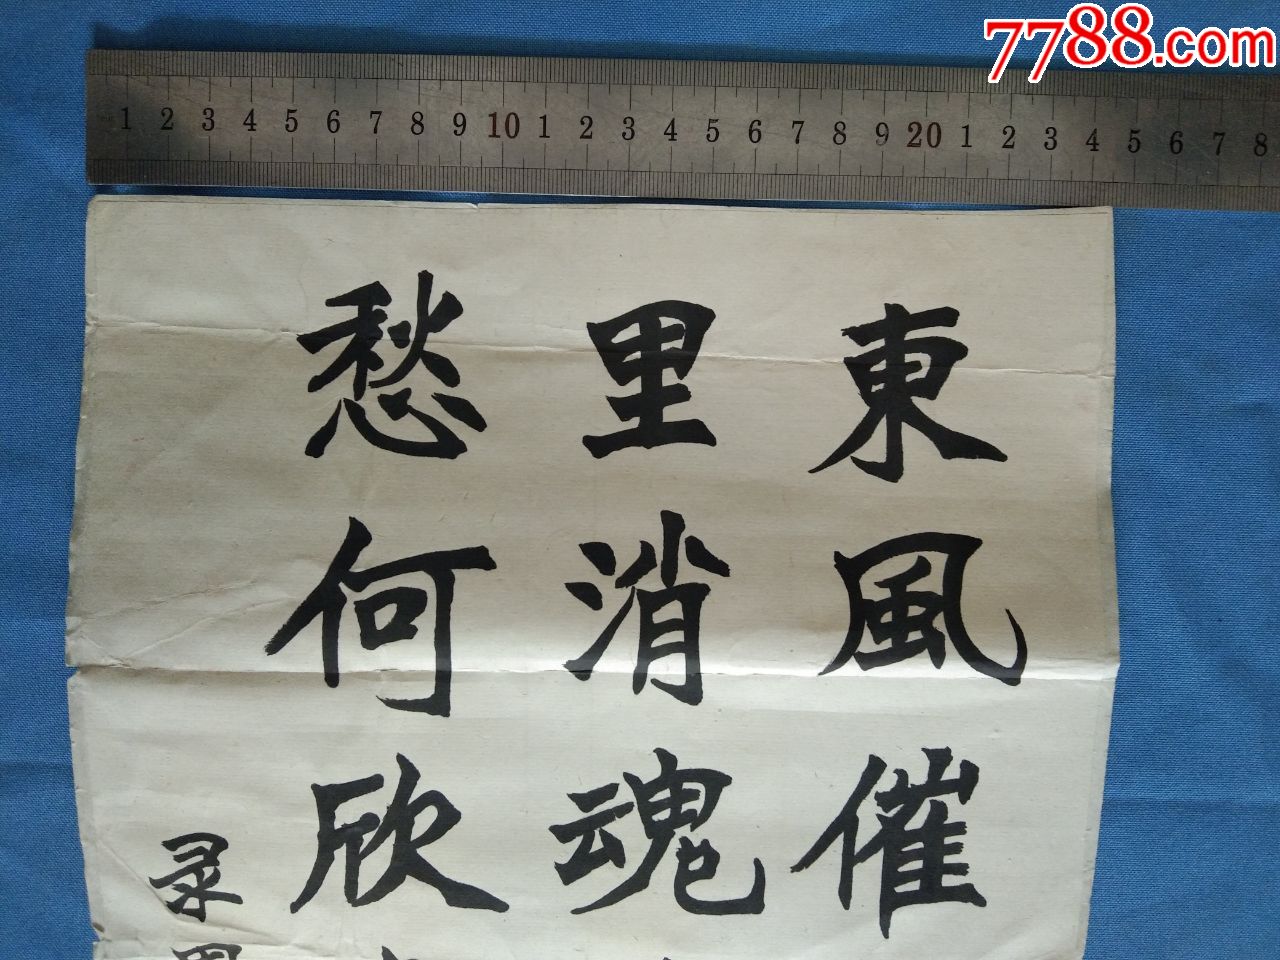 7788.com
1 2 3 4 5 6 7 8 9 10 1 2 3 4 5 6 7 8 9 20 1 2 3 4 5 6 7 8
東風催
里消魂
愁何欣
录